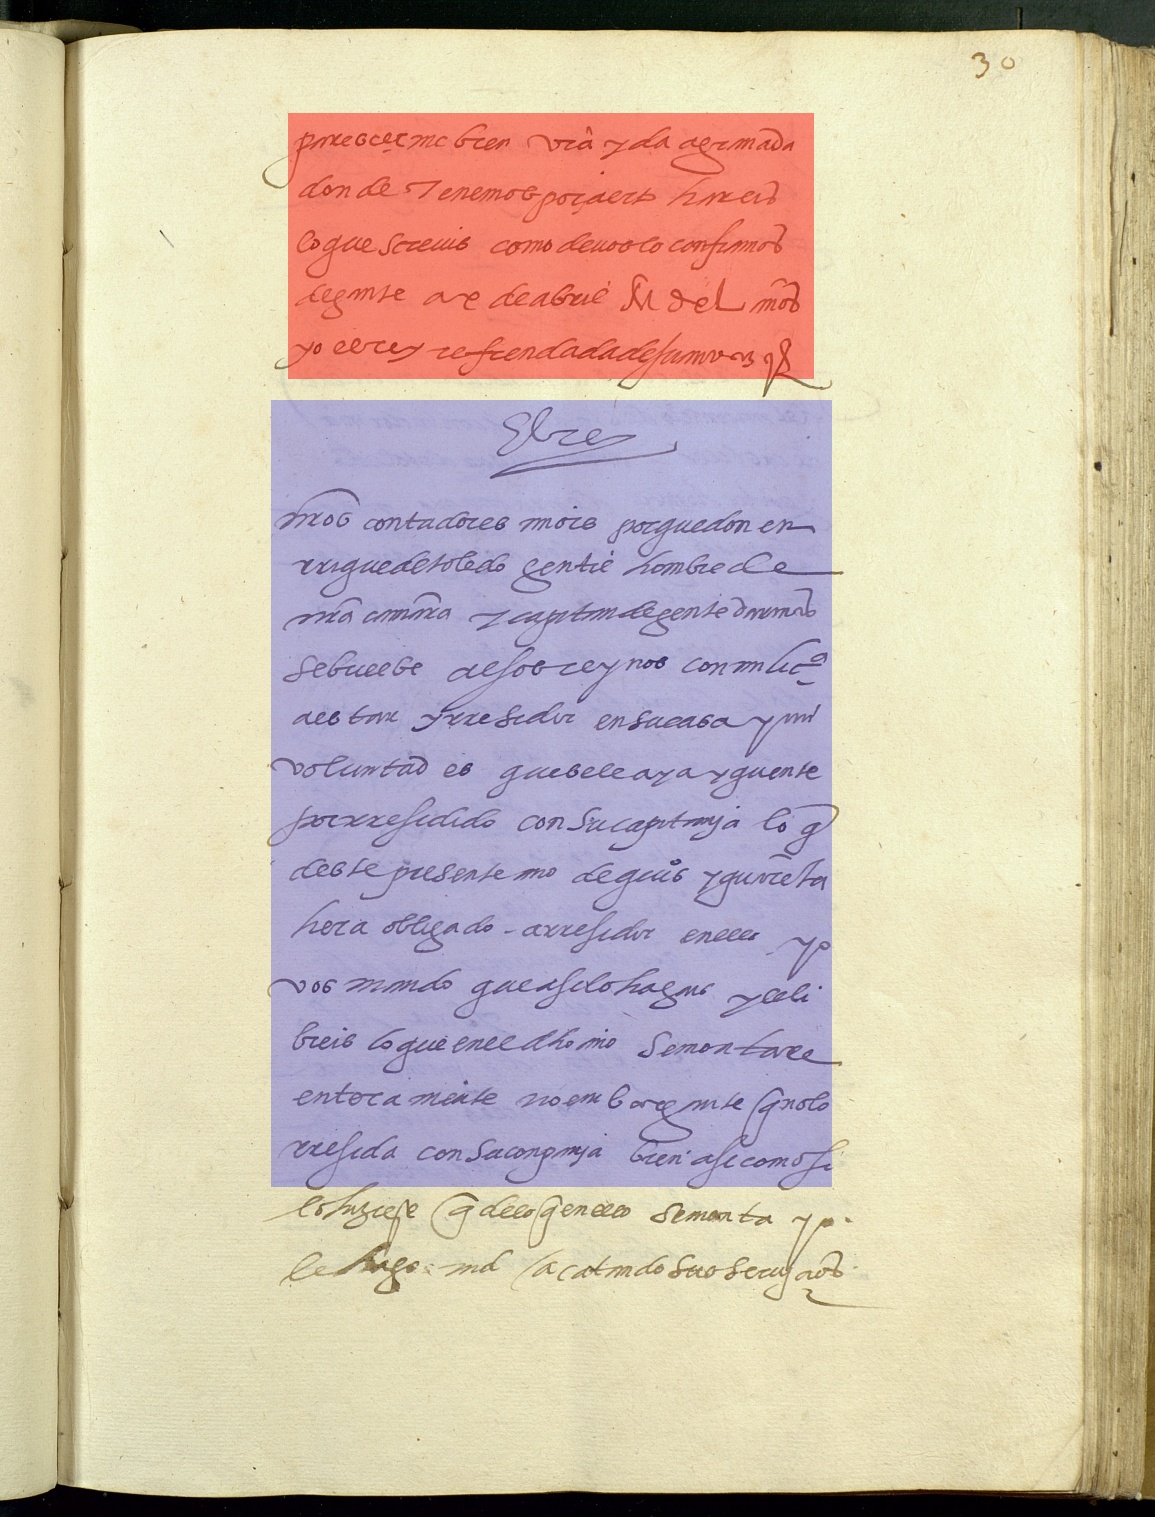 30
paresceer me bien vrã yda a grñada
donde Tenemos por çierto hareis
lo que screuis como de uos lo confiamos
de gante a x de abril M D e L años
yo el rey refrendada de su mano
El rey
nr̃os contadores maiores por que don en
rrique de toledo gentil hombre de
nr̃a camara y capitan de gente darmas
se buelbe a esos reynos con mi licª
a estar y rresidir en su casa y mi
voluntad es que se le aya y quente
por rresidido con su capitania lo q̃
deste presente año de quis y quarẽta
hera obligado a rresidir en ella yo
vos mando que asi lo hagais y le li
breis lo que en el dho año se montare
entera mente no embargante q̃ no lo
rresida con su conpania bien asi como si
lo hiziese q̃ de lo q̃ en ello se monta yo
le hago md acatando sus serui çios